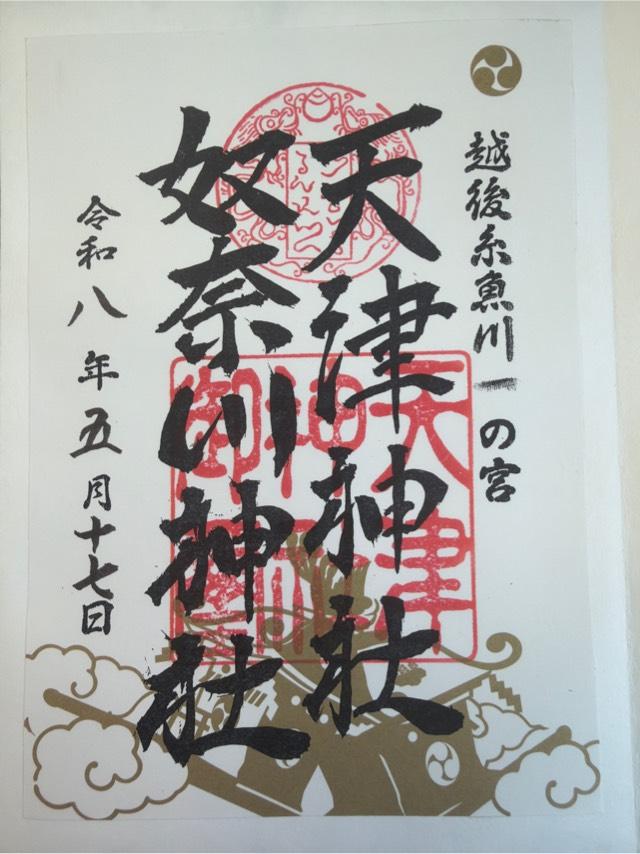 越後糸魚川一の宮
天津神社
奴奈川神社
令和八年五月十七日
天津
神社
御璽